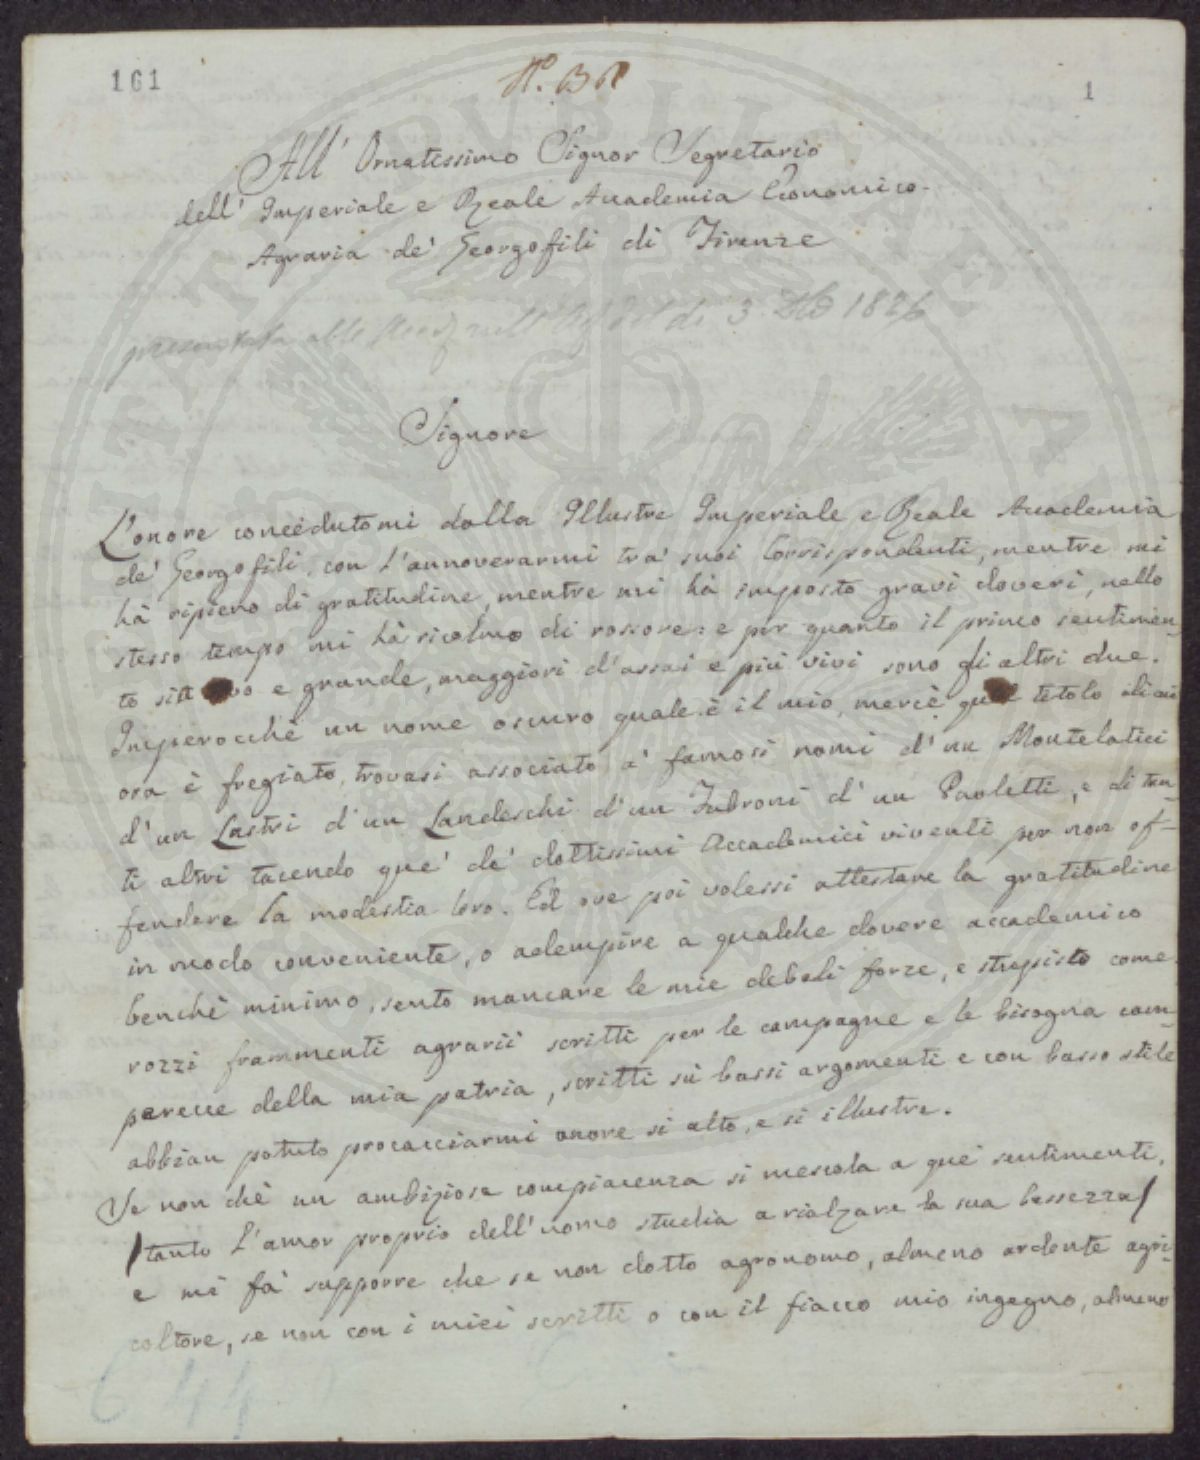 161
1
All' Ornatissimo Signor Segretario
dell' Imperiale e Reale Accademia Economico-
Agraria de' Georgofili di Firenze
presentata alla di 3. 1826
Signore
L'onore concedutomi dalla Illustre Imperiale e Reale Accademia
de' Georgofili, con l'annoverarmi tra' suoi Corrispondenti, mentre mi
hà ripieno di gratitudine, mentre mi hà imposto gravi doveri, nello
stesso tempo mi hà ricolmo di rossore: e per quanto il primo sentimen-
to sia vivo e grande, maggiori d'assai e più vivi sono gli altri due.
Imperocchè un nome oscuro quale è il mio, mercè quel titolo di cui
ora è fregiato, trovasi associato a' famosi nomi d'un Montelatici
d'un Lastri d'un Landeschi d'un Fabroni d'un Paoletti, e di tan-
ti altri tacendo que' de' dottissimi Accademici viventi per non of-
fendere la modestia loro. Ed ove poi volessi attestare la gratitudine
in modo conveniente, o adempire a qualche dovere accademico
benchè minimo, sento mancare le mie deboli forze, e stupisco come
rozzi frammenti agrarii scritti per le campagne e le bisogna cam-
perecce della mia patria, scritti sù bassi argomenti e con basso stile
abbian potuto procacciarmi onore sì alto, e sì illustre.
Se non chè un ambiziosa compiacenza si mescola a que' sentimenti,
/tanto l'amor proprio dell'uomo studia a rialzare la sua bassezza/
e mi fa' supporre che se non dotto agronomo, almeno ardente agri-
coltore, se non con i miei scritti o con il fiacco mio ingegno, almeno
C 44